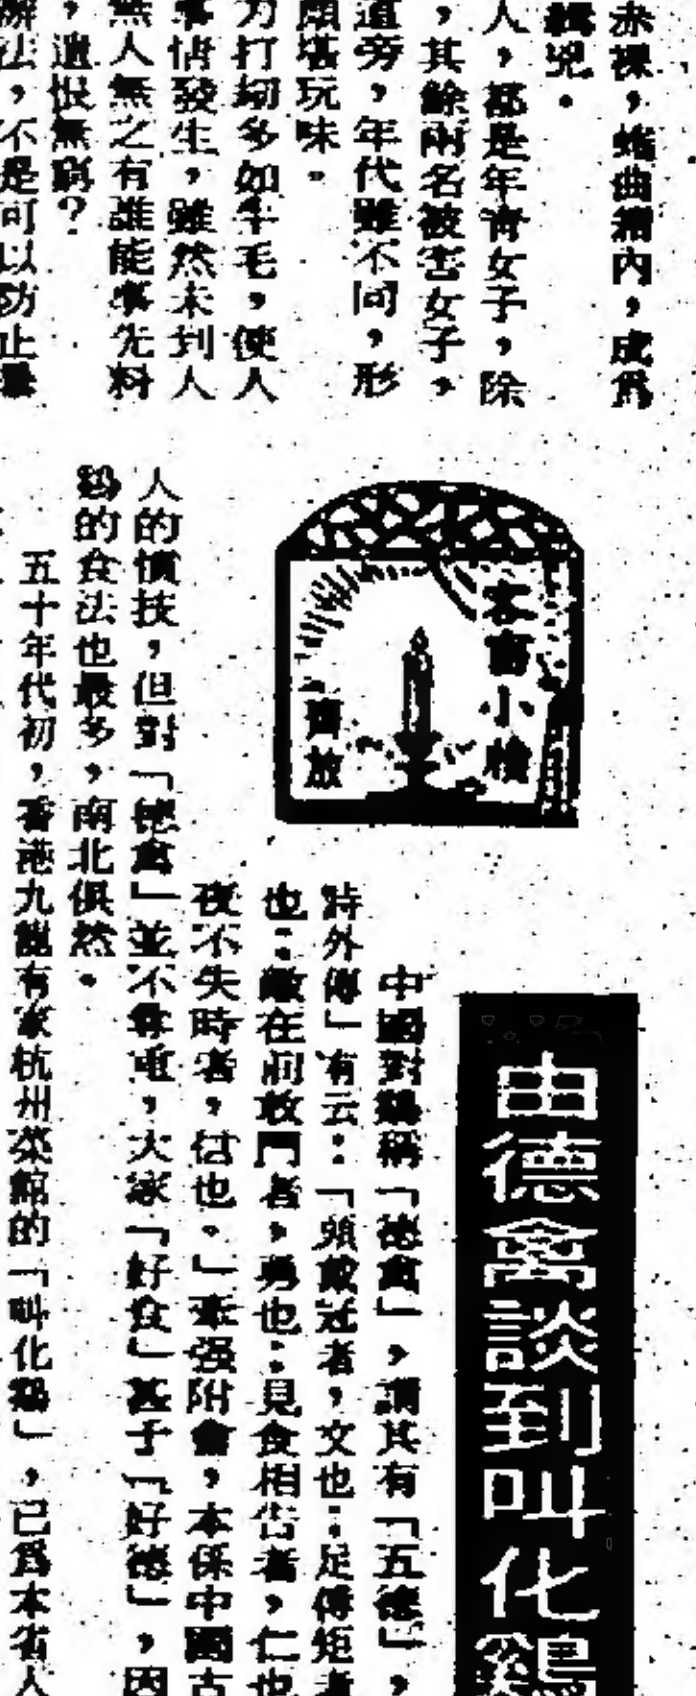 赤裸，蜷曲箱內，成為
緝兇。
人，都是年青女子，除
，其餘兩名被害女子，
道旁，年代雖不同，形
頗堪玩味。
力打劫多如牛毛，使人
事情發生，雖然未到人
無人無之有誰能事先料
，遺恨無窮？
辦法，不是可以防止
客窗小檢
齊放
由德禽談到叫化鷄
中國對鷄稱「德禽」，謂其有「五德」，
詩外傳」有云：「頭戴冠者，文也：足傅矩者
也：敵在前敢鬥者，勇也：見食相告者，仁也
夜不失時者，信也。」牽强附會，本係中國古
人的慣技，但對「德禽」並不尊重，大家「好食」甚于「好德」，因
鷄的食法也最多，南北俱然。
五十年代初，香港九龍有家杭州菜館的「叫化鷄」，已爲本省人